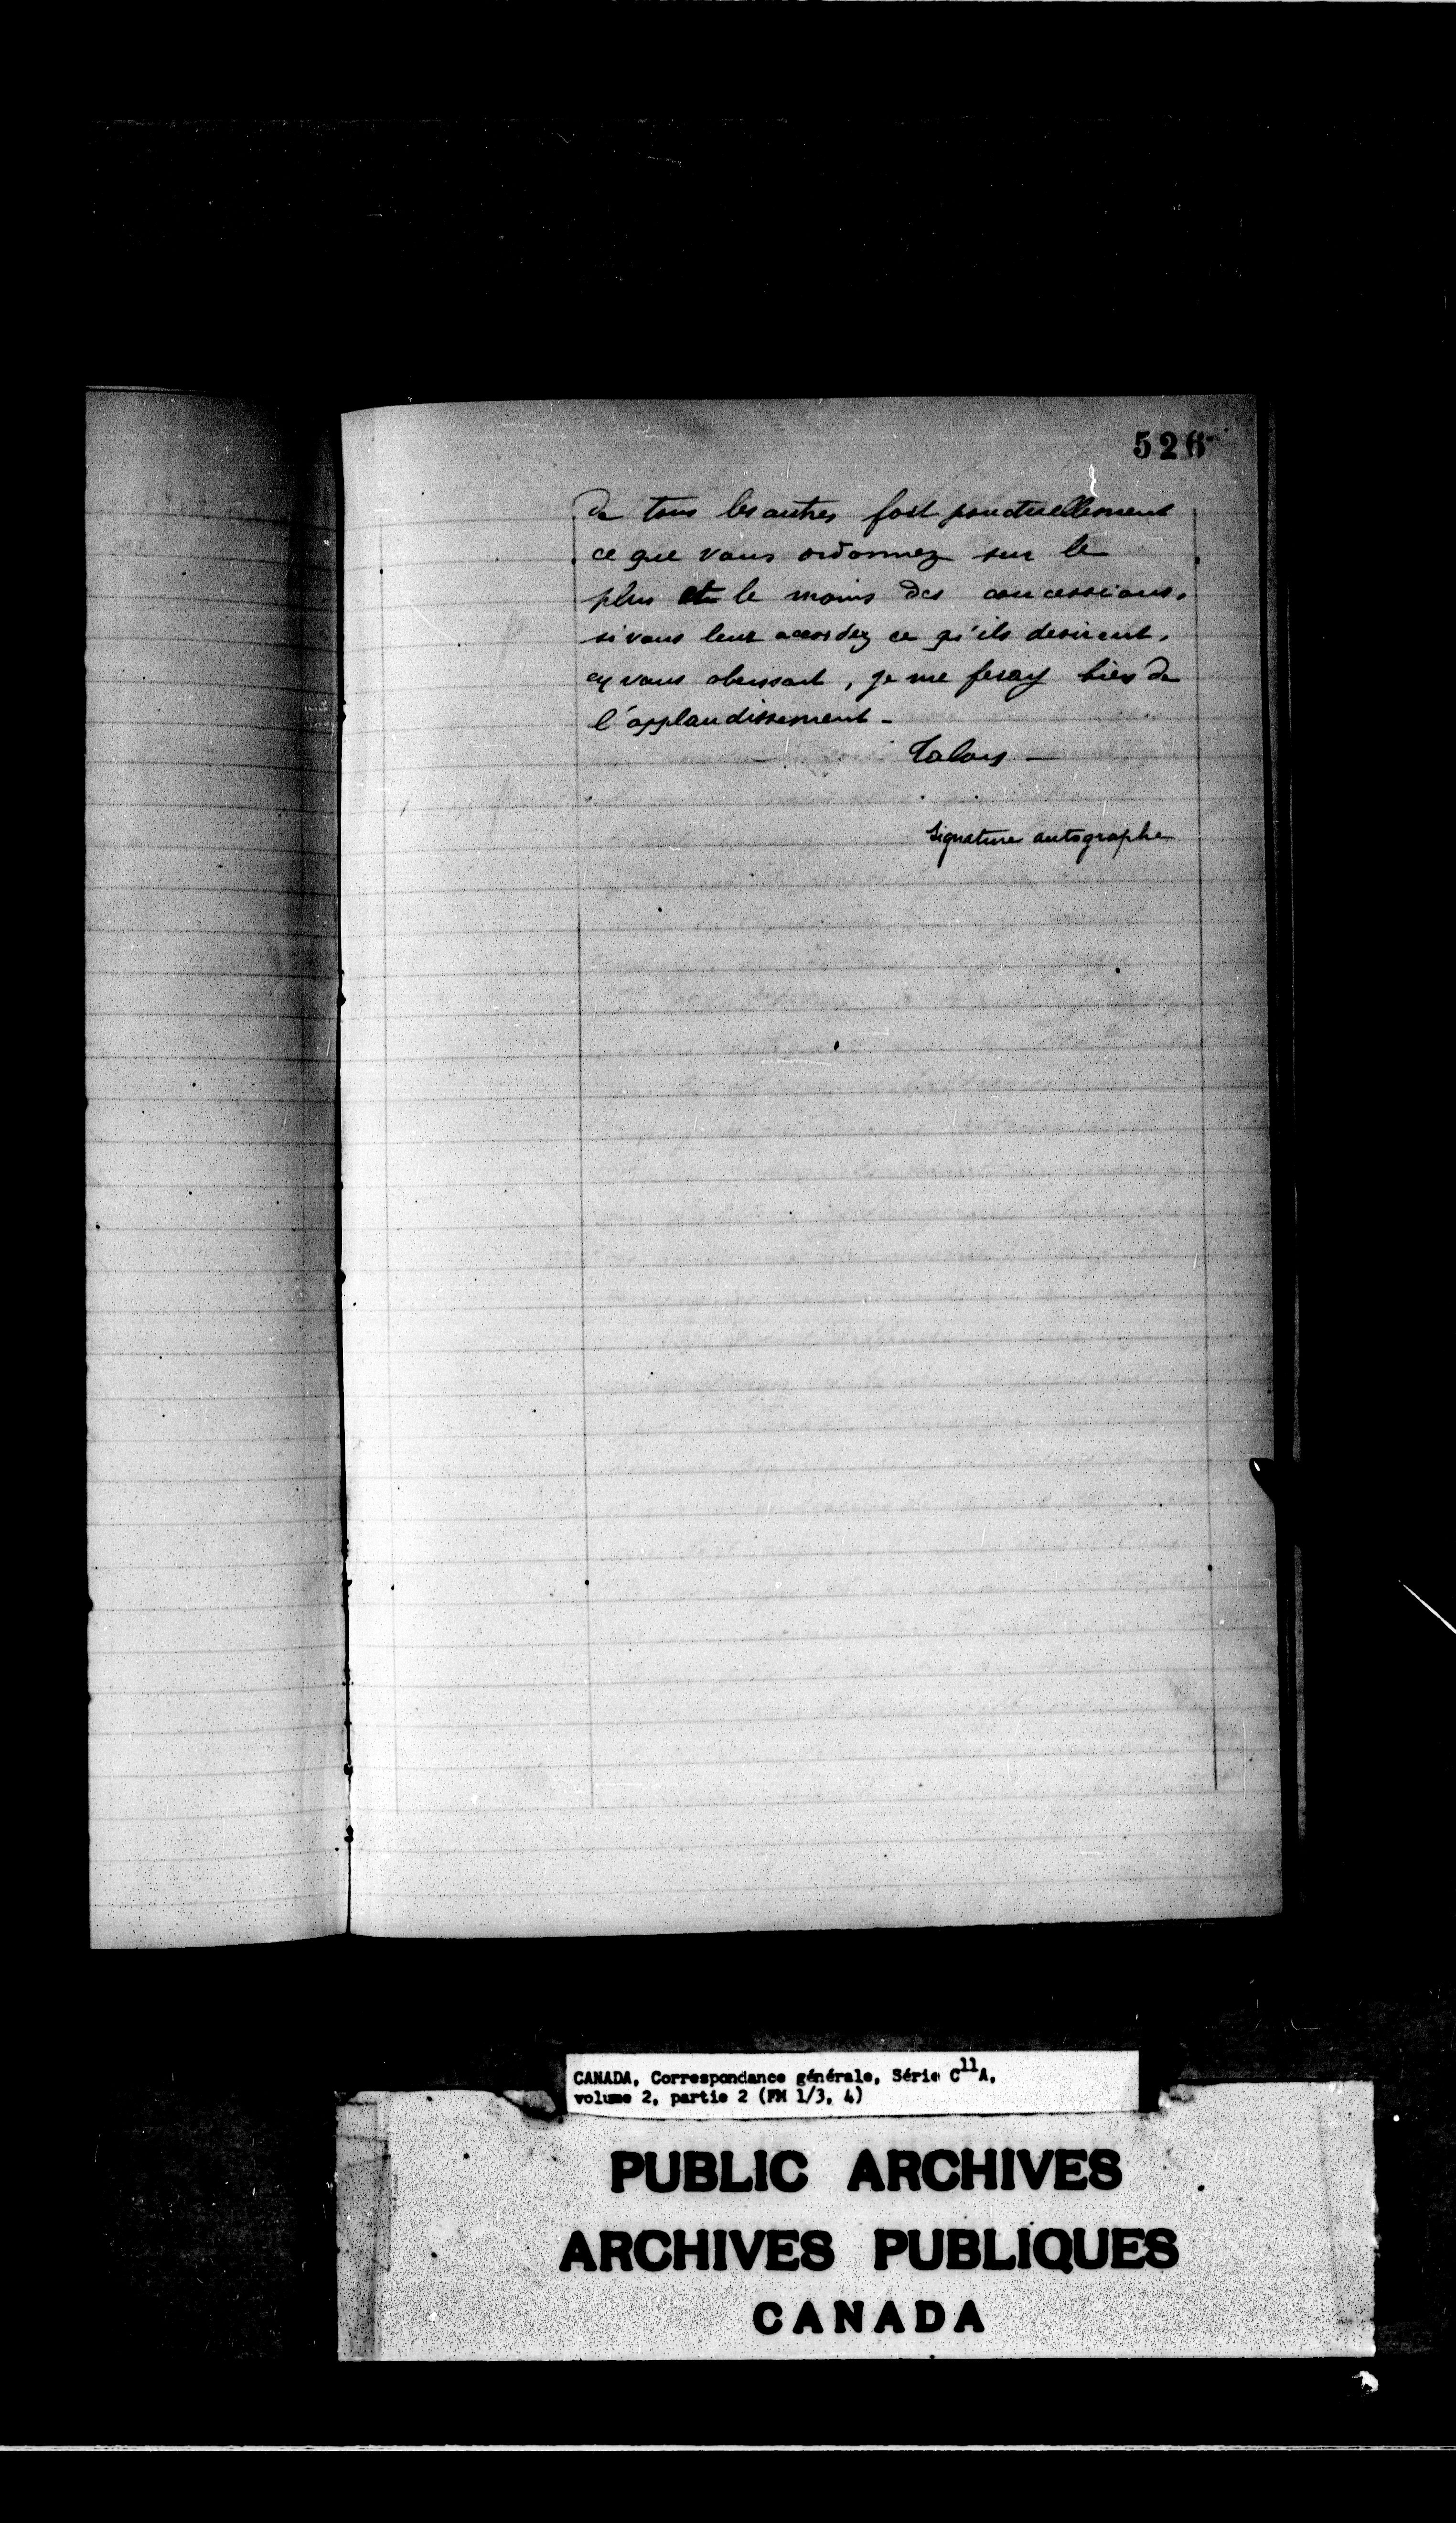 526
de tous les autres fort ponctuellement
ce que vous ordonnez sur le
plus et le moins des concessions.
si vous leur accordez ce qu'ils desirent,
en vous obeissant, je me feray bien de
l'applaudissement -
Talon -
Signature autographe
CANADA, Correspondance générale, Série C11A,
volume 2, partie 2 (FM 1/3, 4)
PUBLIC ARCHIVES
ARCHIVES PUBLIQUES
CANADA